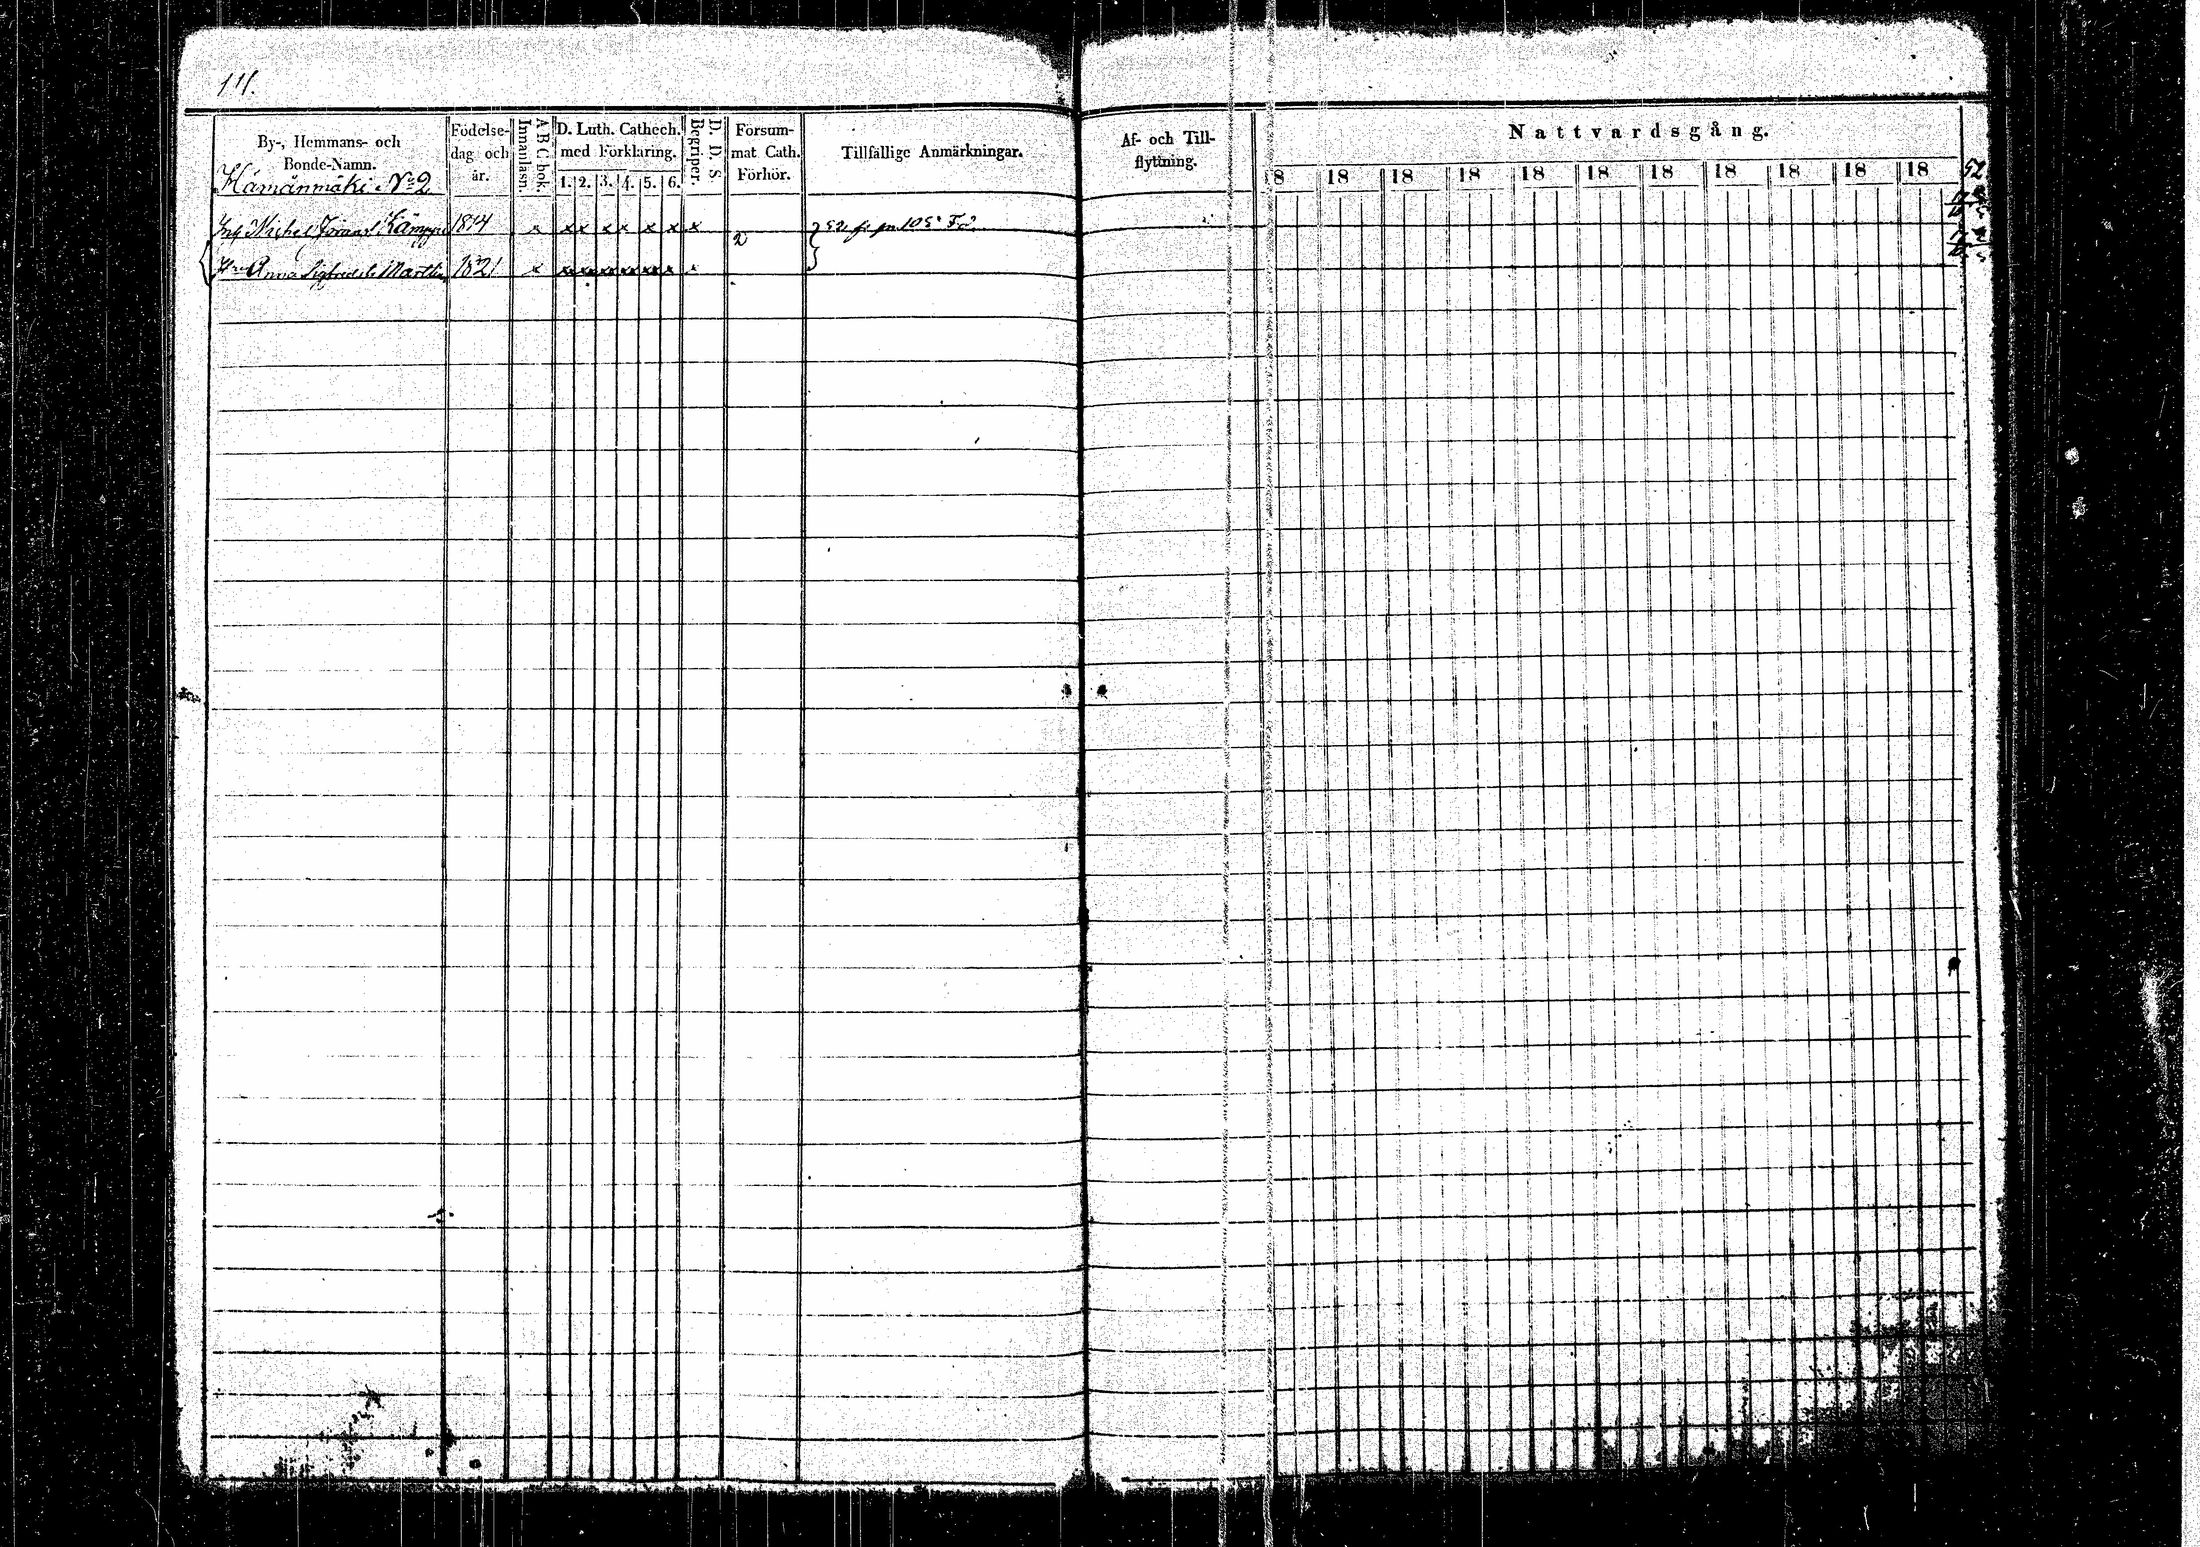 111.
By-, Hemmans- och
Bonde-Namn.
Födelse-
dag och
år.
A B C bok.
Innanläsn.
D. Luth. Cathech.
med Förklaring.
1. 2. 3. 4. 5. 6.
D. D. S.
Begriper.
Försum-
mat Cath.
Förhör.
Tillfällige Anmärkningar.
Af- och Till-
flyttning.
Nattvardsgång.
18 18 18 18 18 18 18 18 18 18 18 52
Hämänmäki No 2
Michel Göransson 1814 x x x x x x x x 2
Anna Sigfredsdr Martti 1821 x x x x x x x x